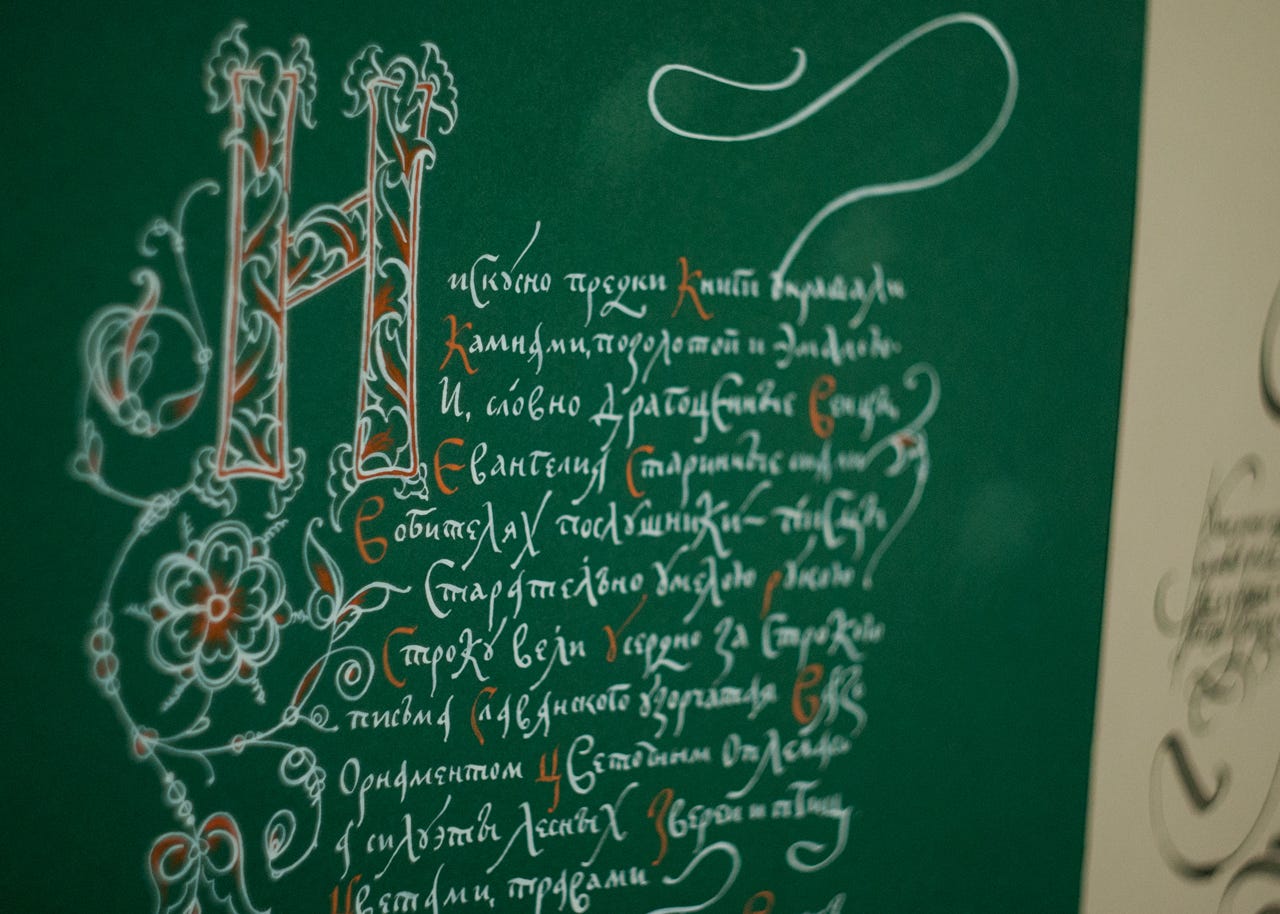 Н
искусно предки Книги украшали
Камнями, позолотой и
И, словно драгоценные венцы,
Евангелия Старинные
В обителях послушники – писцы
Старательно умелою рукою
Строку вели усердно за Строкою
письма Славянского узорчатая вязь
Орнаментом цветочным
а силуэты лесных Зверей и птиц
Цветами, травами